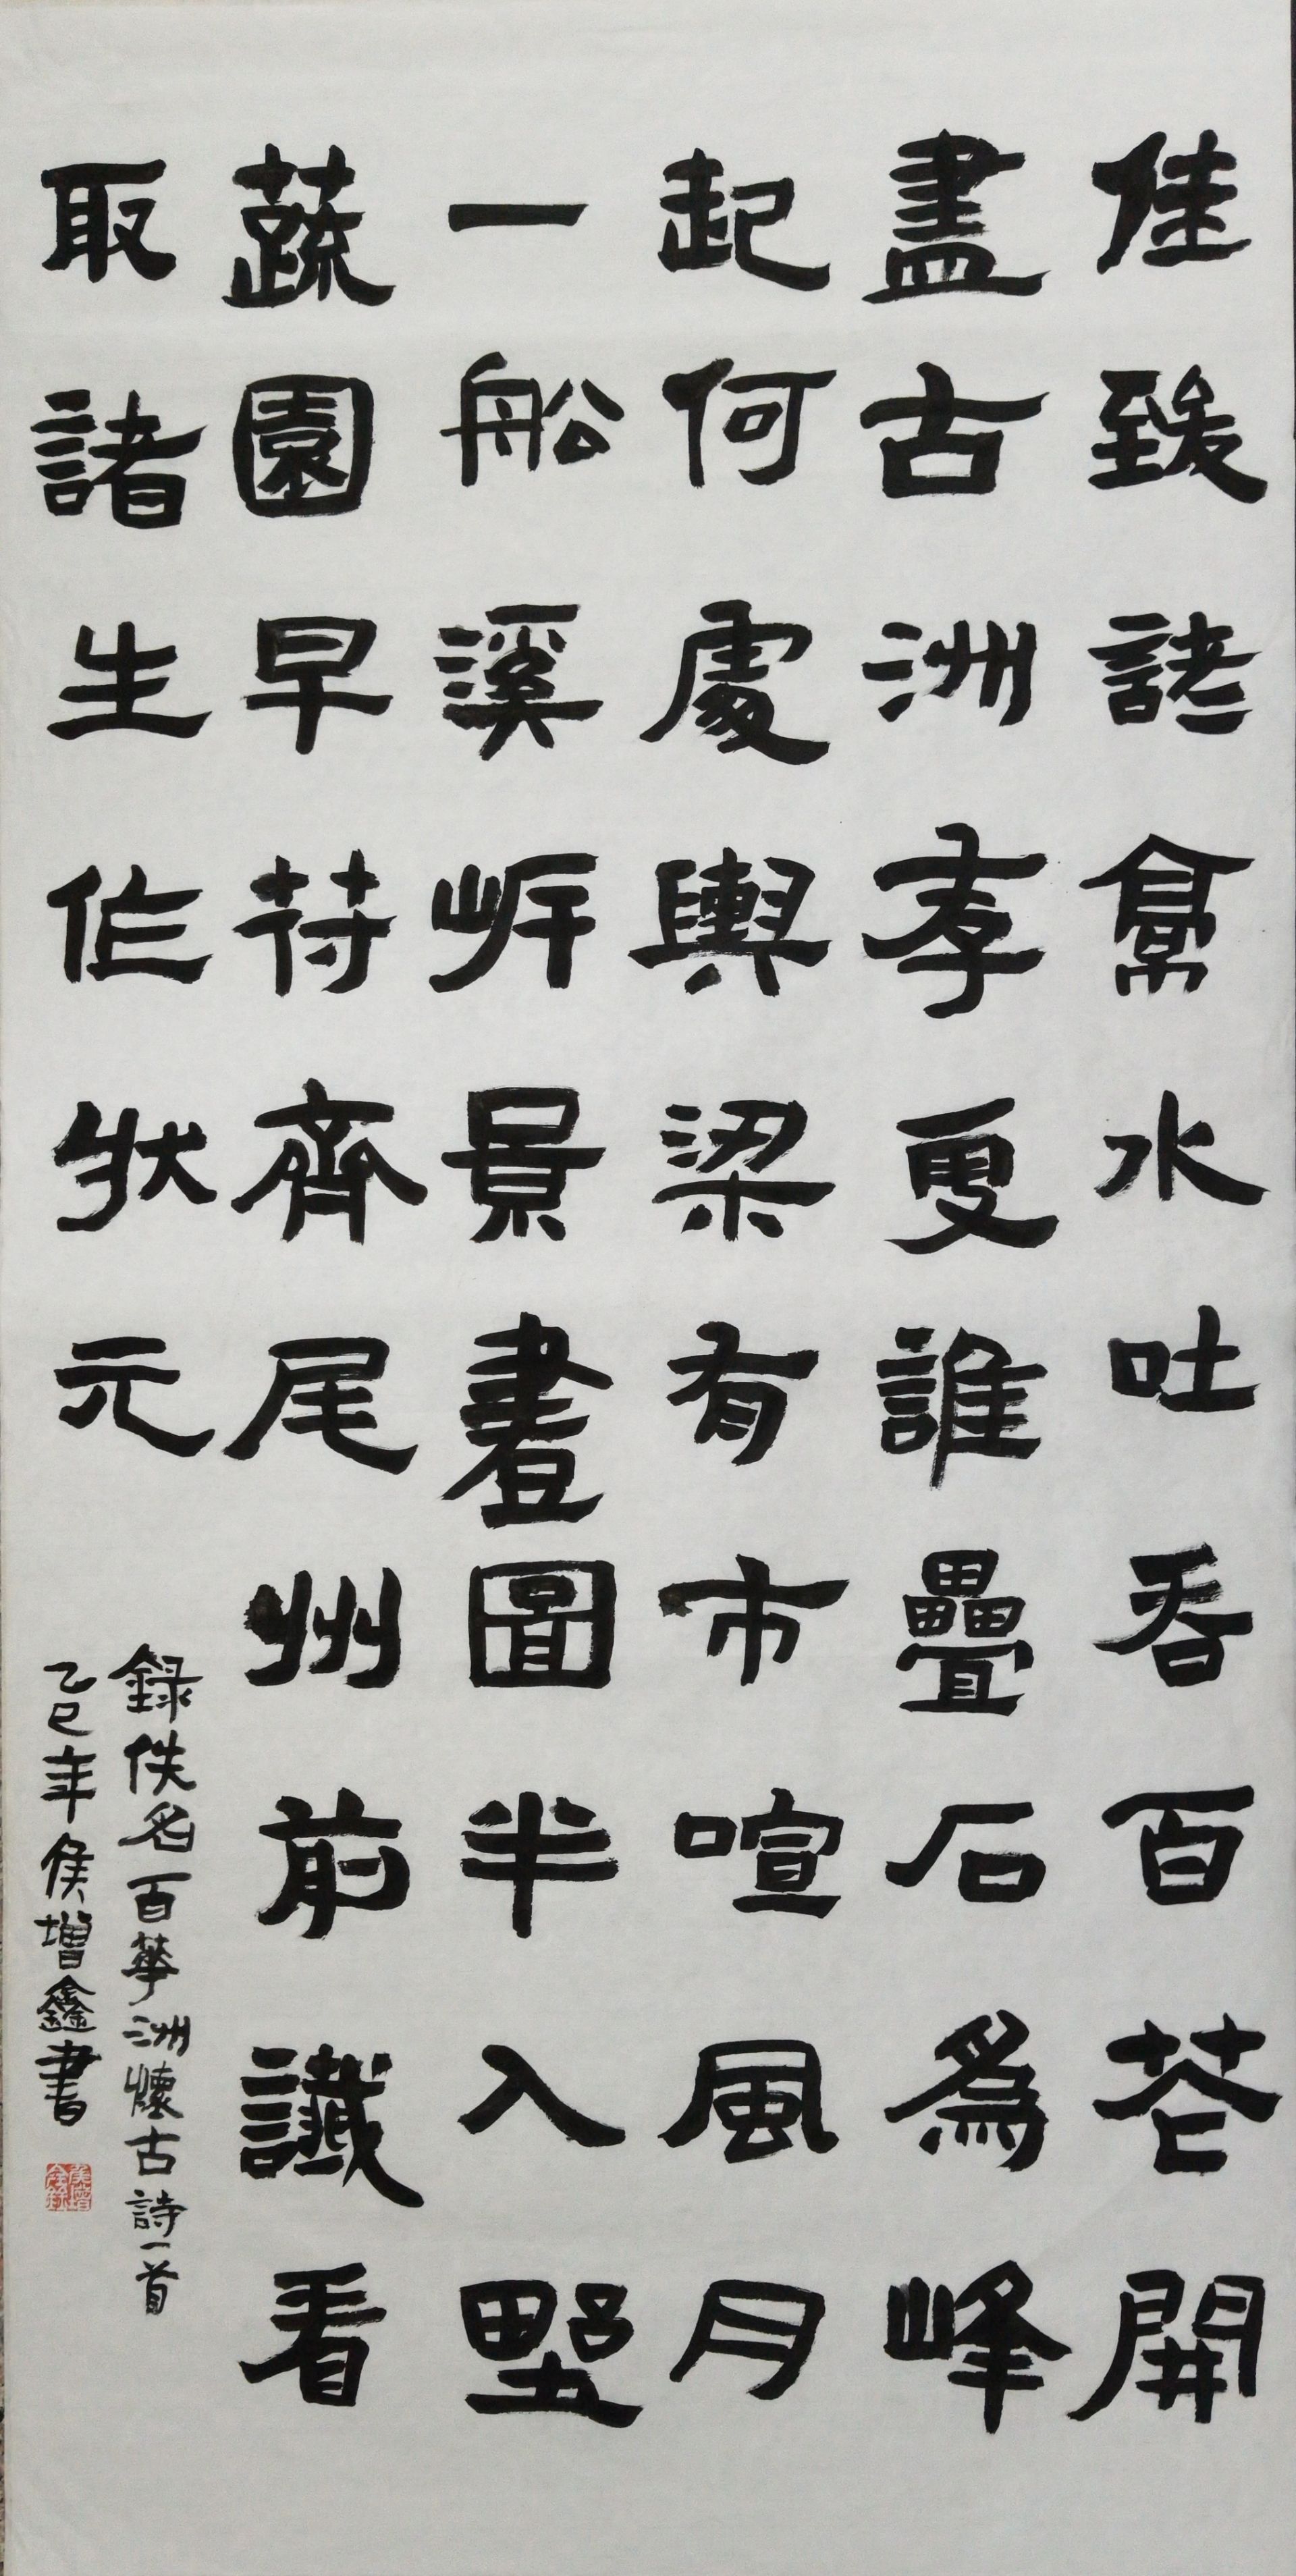 佳致水吐吞百花開
盡古洲存更誰疊石為峰
起何處輿梁有市喧風月
一船溪岸景畫圖半入野
蔬園早符齊尾州前讖看
取諸生作狀元
録佚名百華洲懷古詩一首
乙巳年侯增鑫書